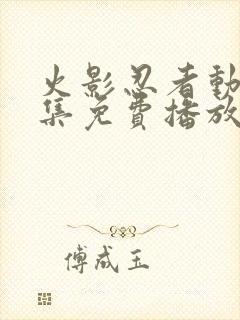 火影忍者動
集免費播放
傅成玉